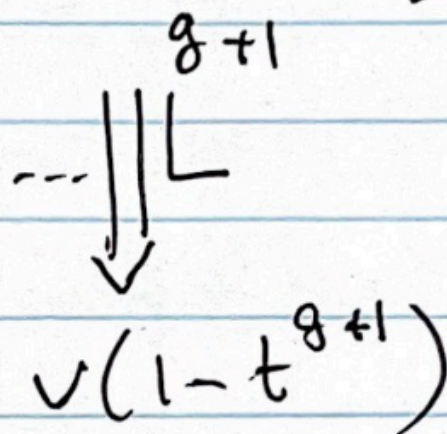 g+1
--- ⇓ L
v(1-t^{g+1})